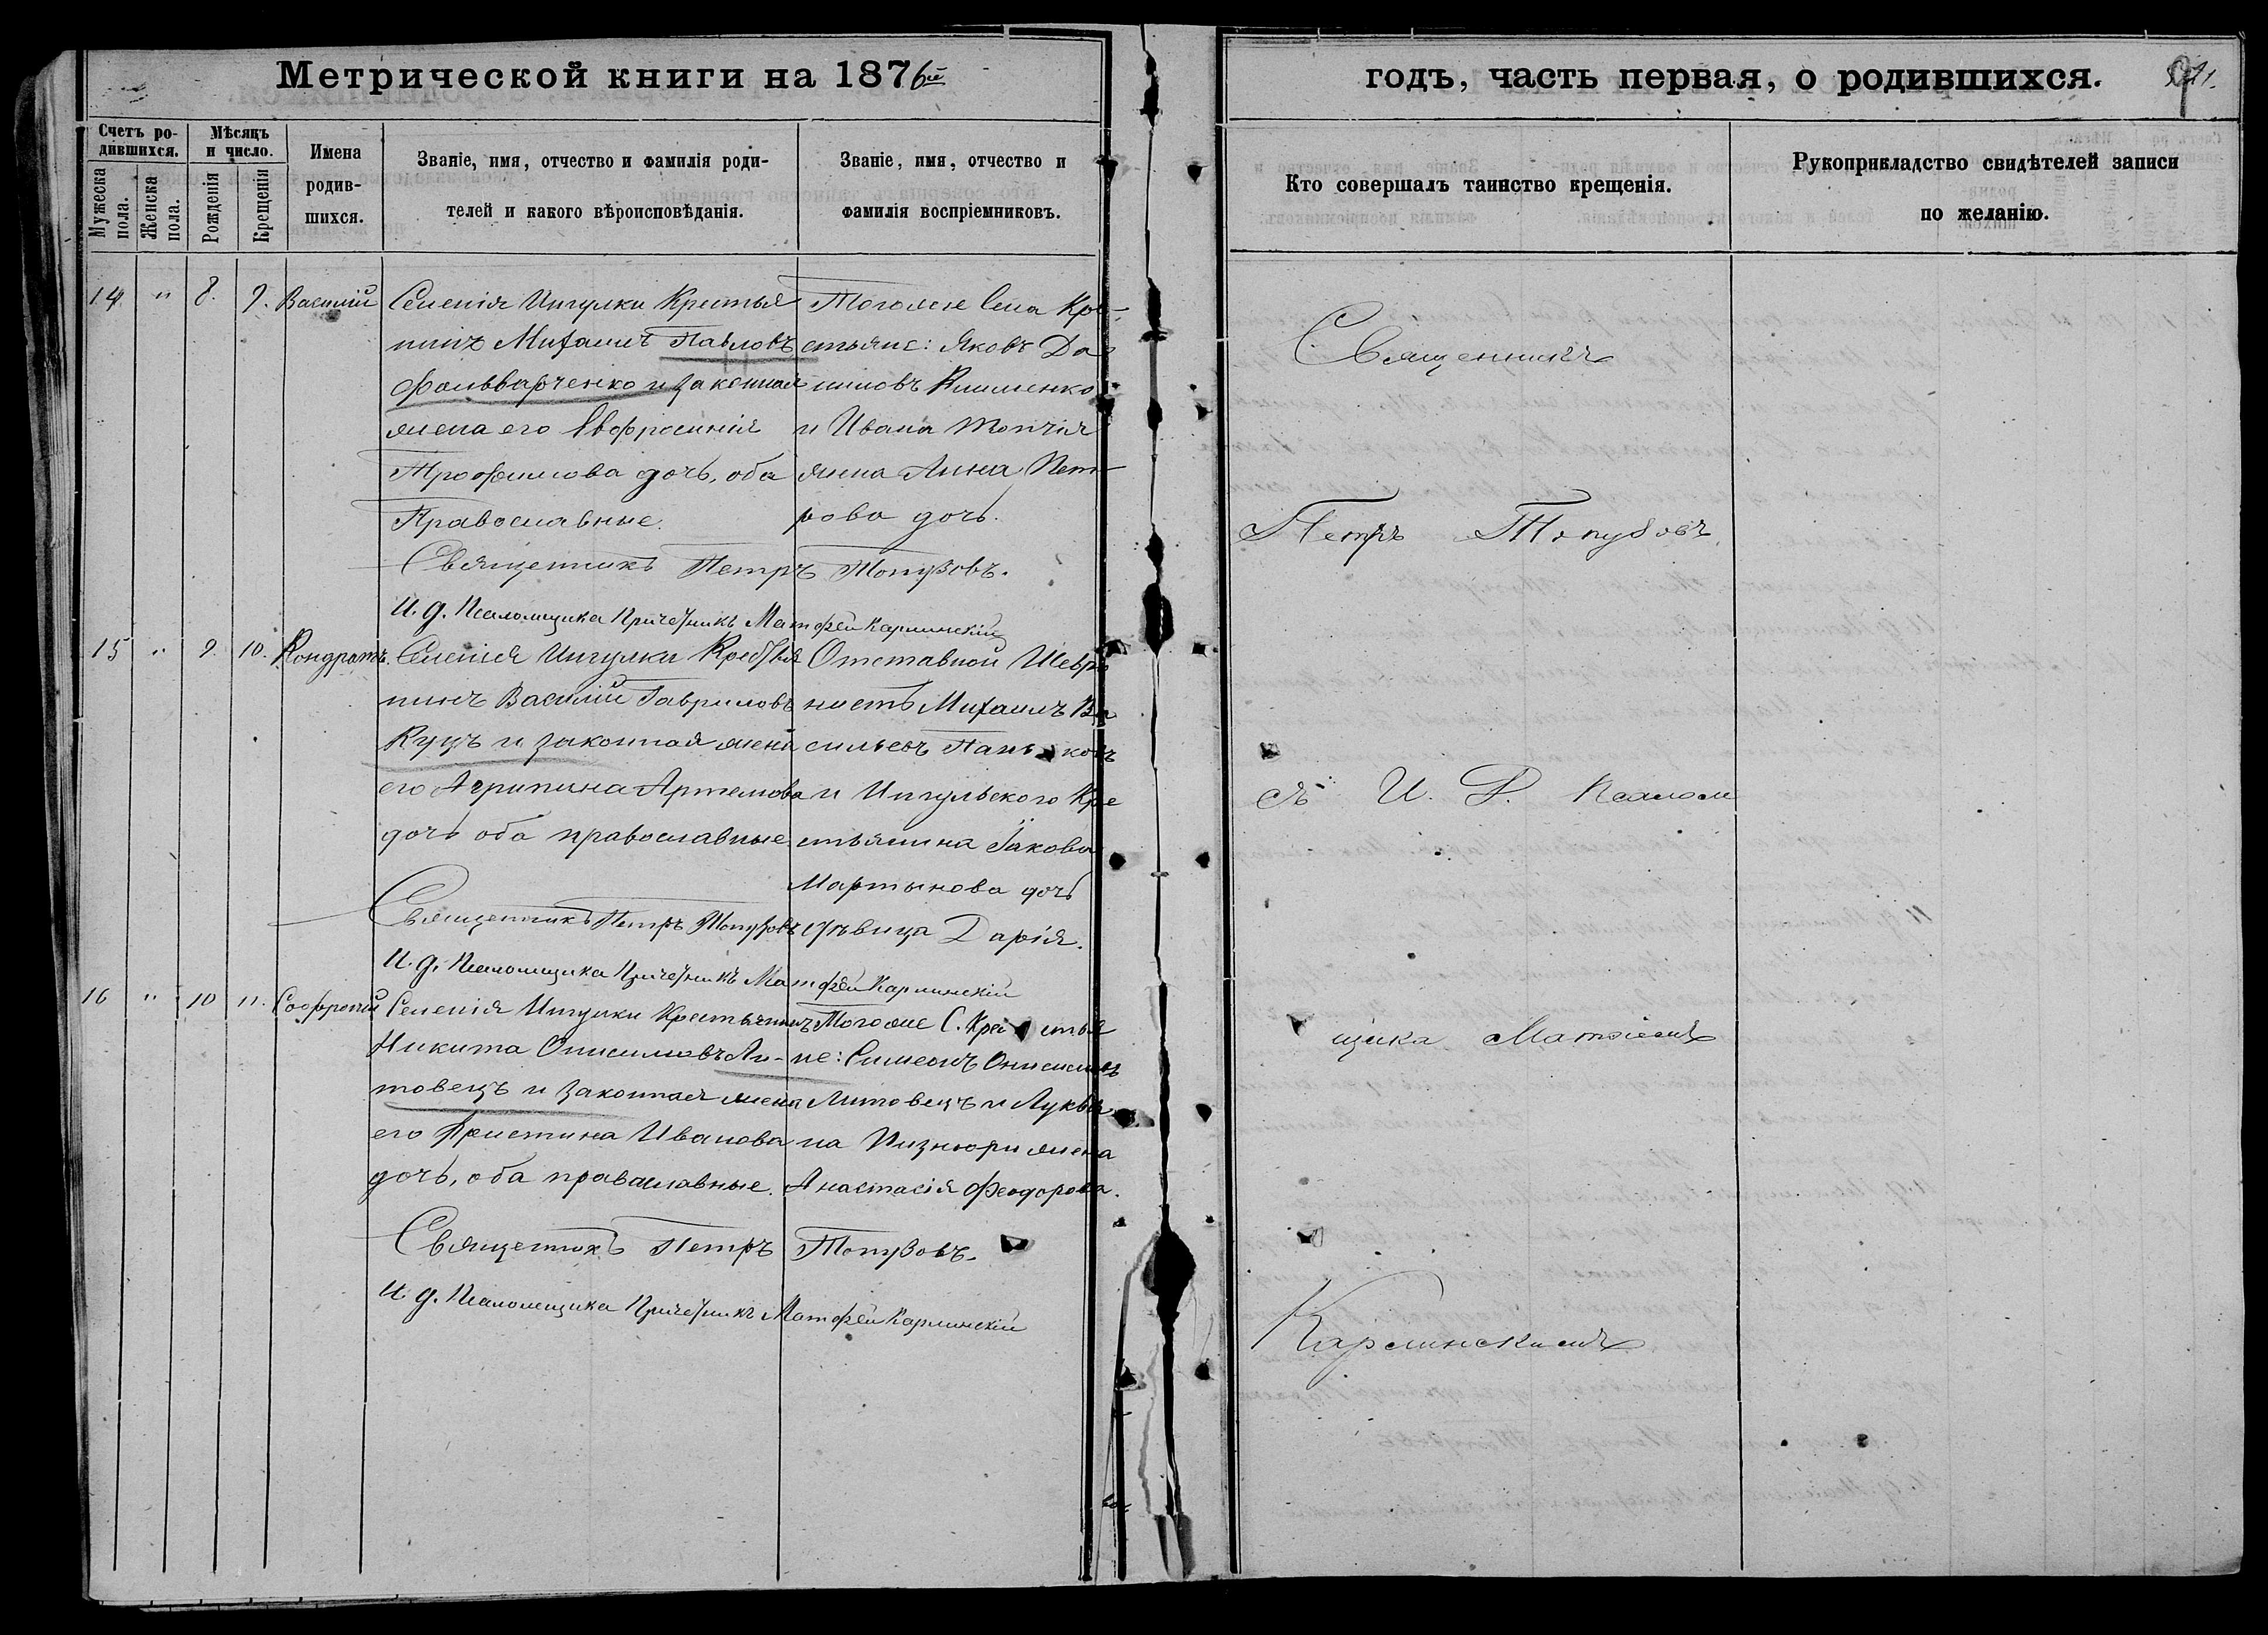 Метрической книги на 1876й
годъ, часть первая, о родившихся.
Счетъ ро-
дившихся.
Мѣсяцъ
и число.
Мужеска
пола.
Женска
пола.
Рожденія
Крещенія
Имена
родив-
шихся.
Званіе, имя, отчество и фамилія роди-
телей и какого вѣроисповѣданія.
Званіе, имя, отчество и
фамилія воспріемниковъ.
Кто совершалъ таинство крещенія.
Рукоприкладство свидѣтелей записи
по желанію.
14 " 8. 9. Василій
Селенія Ингулки Крестья
нинъ Михаилъ Павловъ
Фольварченко и законная
жена его Евфросинія
Трофимова дочь, оба
Православные.
Тогоже Села Кре-
стьяне: Яковъ Да
ниловъ Клименко
и Ивана
жена Анна Пет-
рова дочь.
Священникъ Петръ Топузовъ.
И. д. Псаломщика Причетникъ Матфей Карлинскій
15 " 9. 10. Кондратъ.
Селенія Ингулки Крестья
нинъ Василій Гавриловъ
Куцъ и законная жена
его Агрипина Артемова
дочь оба православные.
Отставной Шевро
нистъ Михаилъ Ва
сильевъ
и Ингульского Кре
стьянина Іакова
Мартынова дочь
дѣвица Дарія.
Священникъ Петръ Топузовъ
И. д. Псаломщика Причетникъ Матфей Карлинскій
16 " 10 11. Софроній
Селенія Ингулки Крестьянинъ
Никита Онисимовъ Ли-
товецъ и законная жена
его Христина Иванова
дочь, оба православные.
Тогоже С. Крестья
не: Симеонъ Онисимовъ
Литовецъ и Лукья
на жена
Анастасія Феодорова.
Священникъ Петръ Топузовъ.
И. д. Псаломщика Причетникъ Матфей Карлинскій
Священникъ
Петръ Топузовъ
съ И. Д. Псалом
щика Матѳіемъ
Карлинскимъ